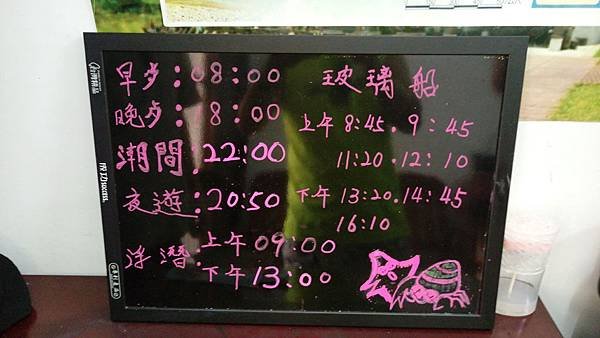 早歺：08：00
晚歺：18：00
潮間：22:00
夜遊：20:50
浮潛：上午09:00
下午13:00
玻璃船
上午8:45．9：45
11:20．12：10
下午13:20．14：45
16:10